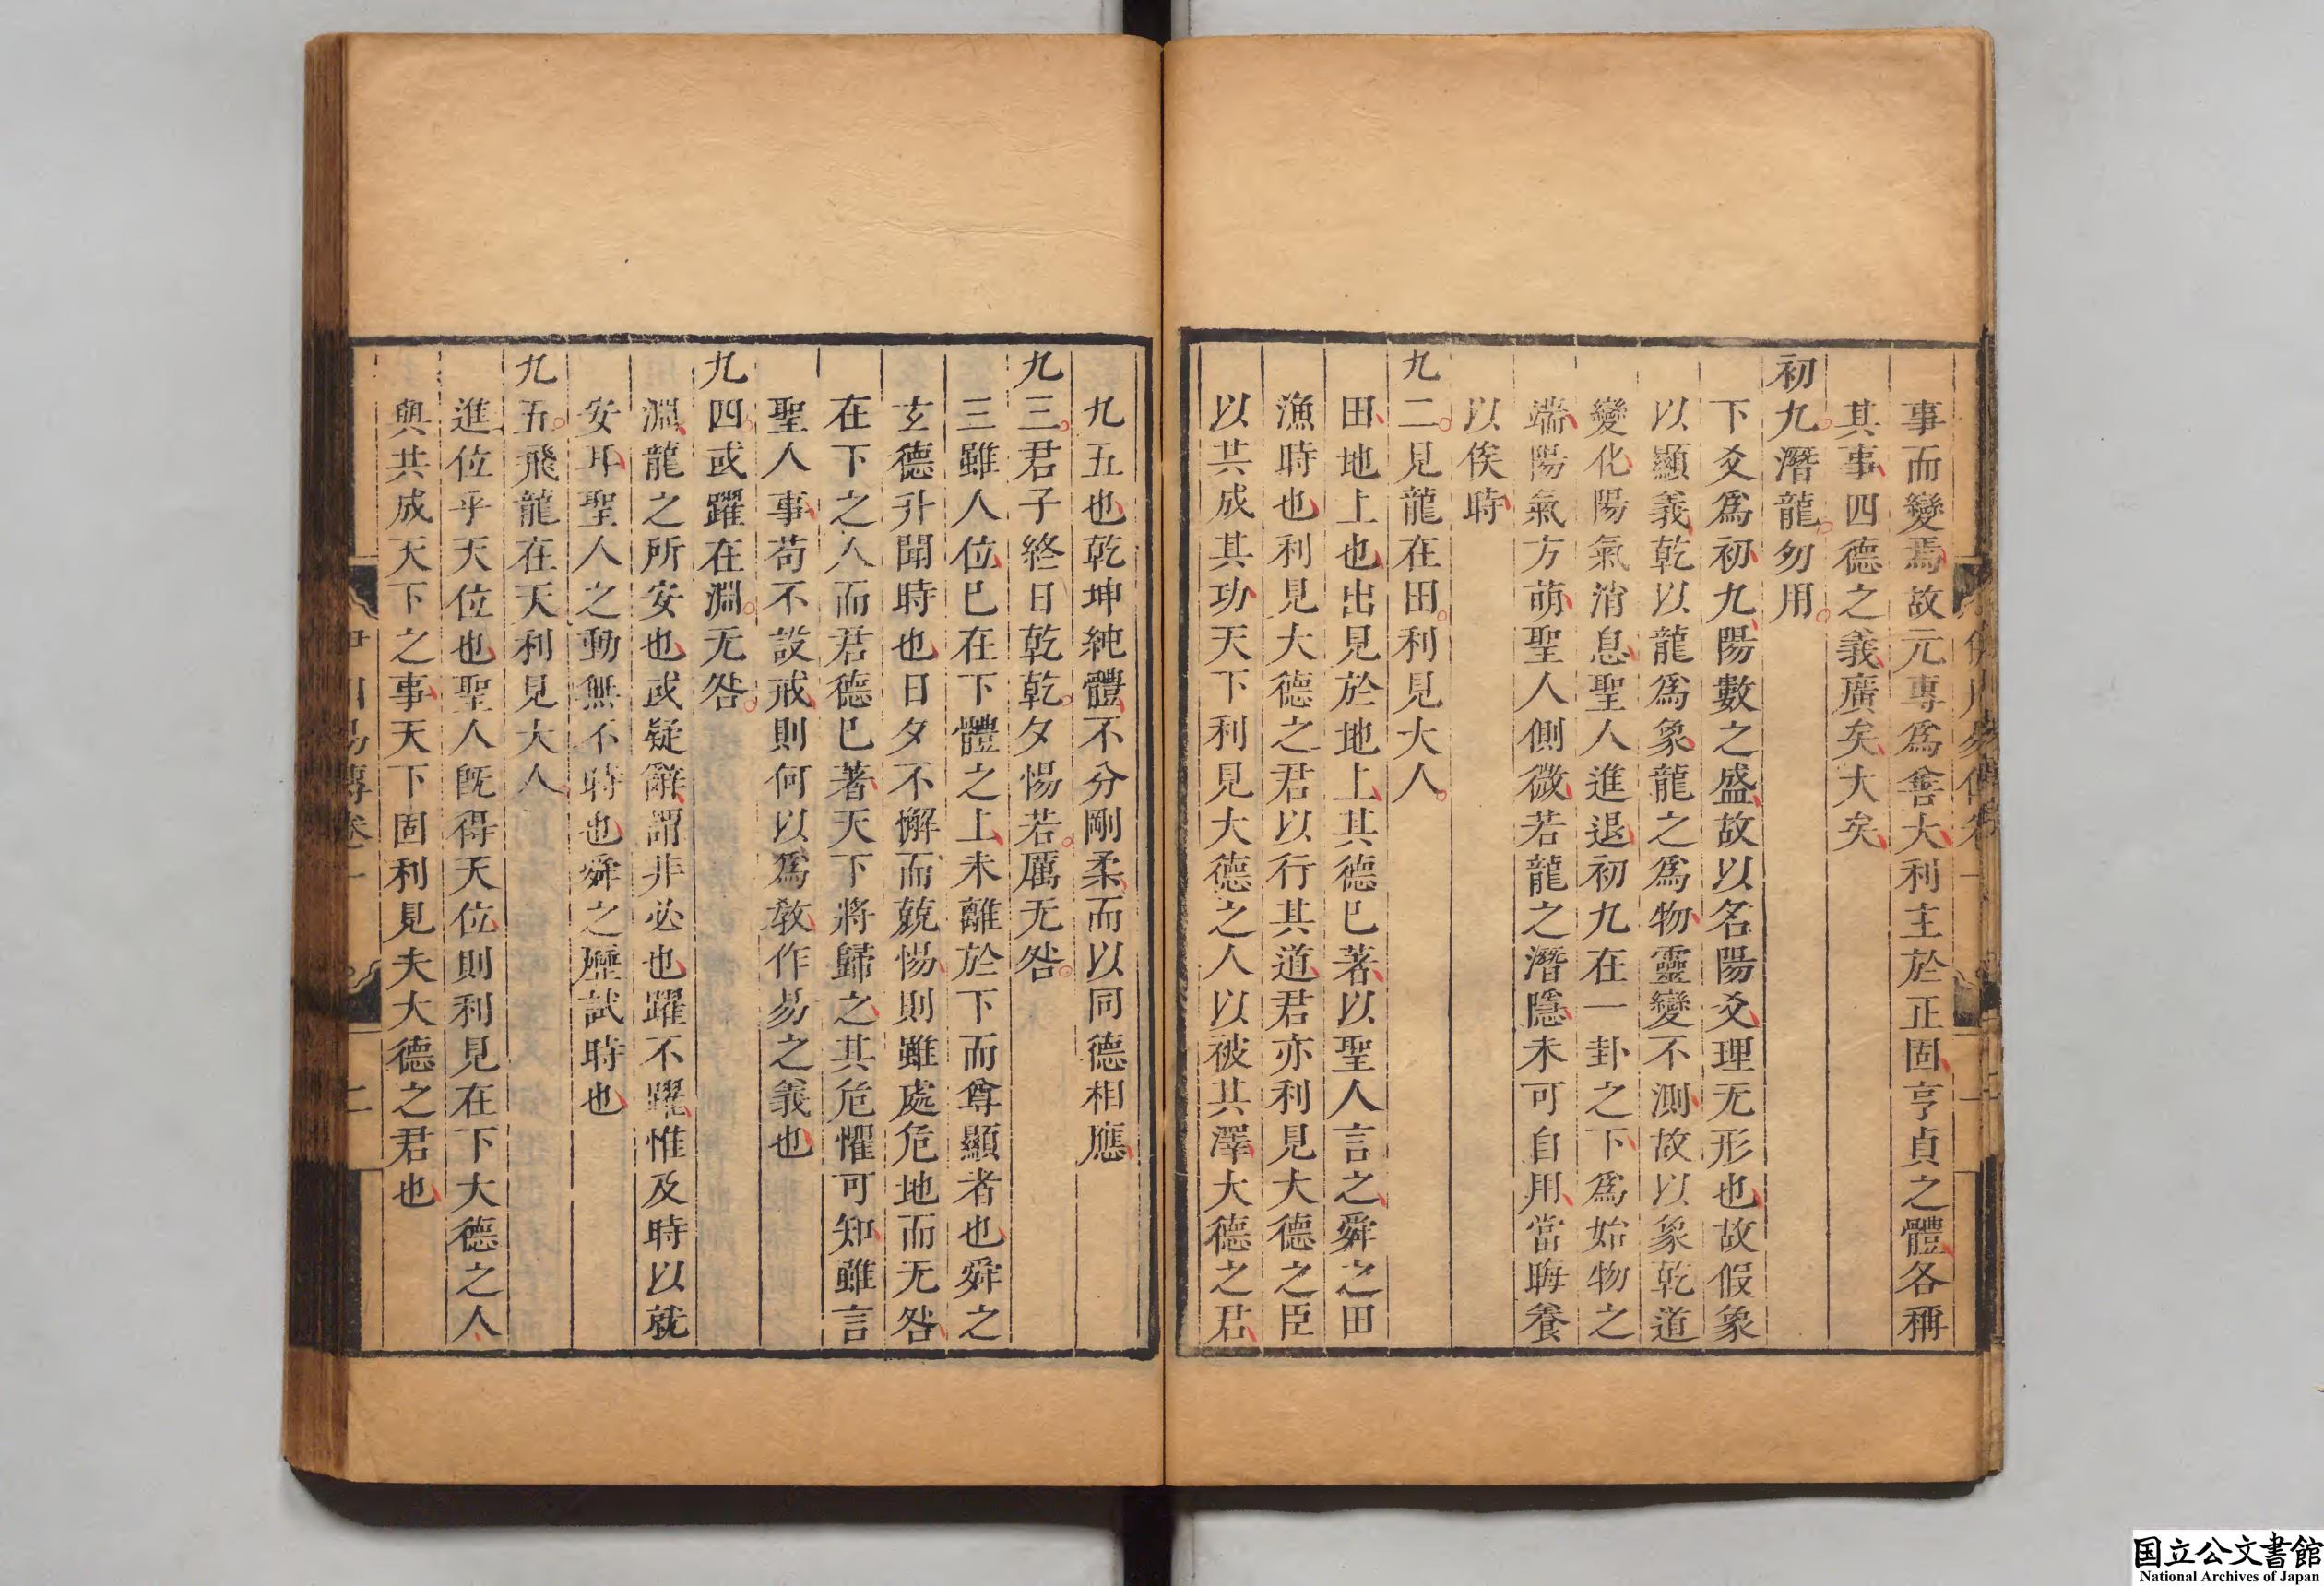 事而變焉故元專爲善大利主於正固亨貞之體各稱
其事四德之義廣矣大矣
初九潛龍勿用
下爻爲初九陽數之盛故以名陽爻理无形也故假象
以顯義乾以龍爲象龍之爲物靈變不測故以象乾道
變化陽氣消息聖人進退初九在一卦之下爲始物之
端陽氣方萌聖人側微若龍之潛隱未可自用當晦養
以俟時
九二見龍在田利見大人
田地上也出見於地上其德已著以聖人言之舜之田
漁時也利見大德之君以行其道君亦利見大德之臣
以共成其功天下利見大德之人以被其澤大德之君
九五也乾坤純體不分剛柔而以同德相應
九三君子終日乾乾夕惕若厲无咎
三雖人位已在下體之上未離於下而尊顯者也舜之
玄德升聞時也日夕不懈而兢惕則雖處危地而无咎
在下之人而君德已著天下將歸之其危懼可知雖言
聖人事苟不設戒則何以爲教作易之義也
九四或躍在淵无咎
淵龍之所安也或疑辭謂非必也躍不躍惟及時以就
安耳聖人之動無不時也舜之歷試時也
九五飛龍在天利見大人
進位乎天位也聖人既得天位則利見在下大德之人
與共成天下之事天下固利見夫大德之君也
伊川易傳卷一
二
国立公文書館
National Archives of Japan